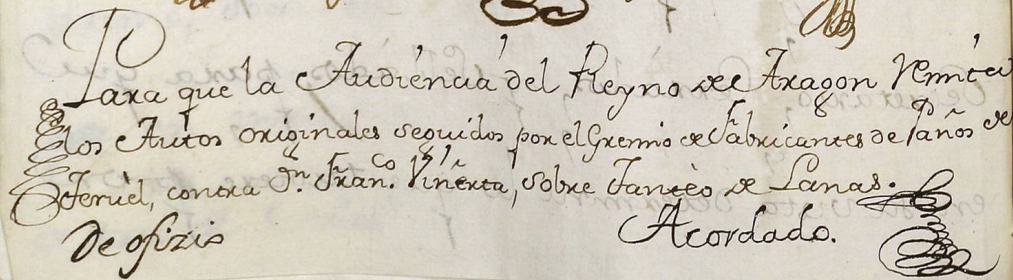 Para que la Audiéncia del Reyno de Aragon Remita
los Autos originales seguidos por el Gremio de Fabricantes de Paños de
Teruèl, contra Dn. Franco. Viñerta, sobre Tantèo de Lanas.
De ofizio
Acordado.